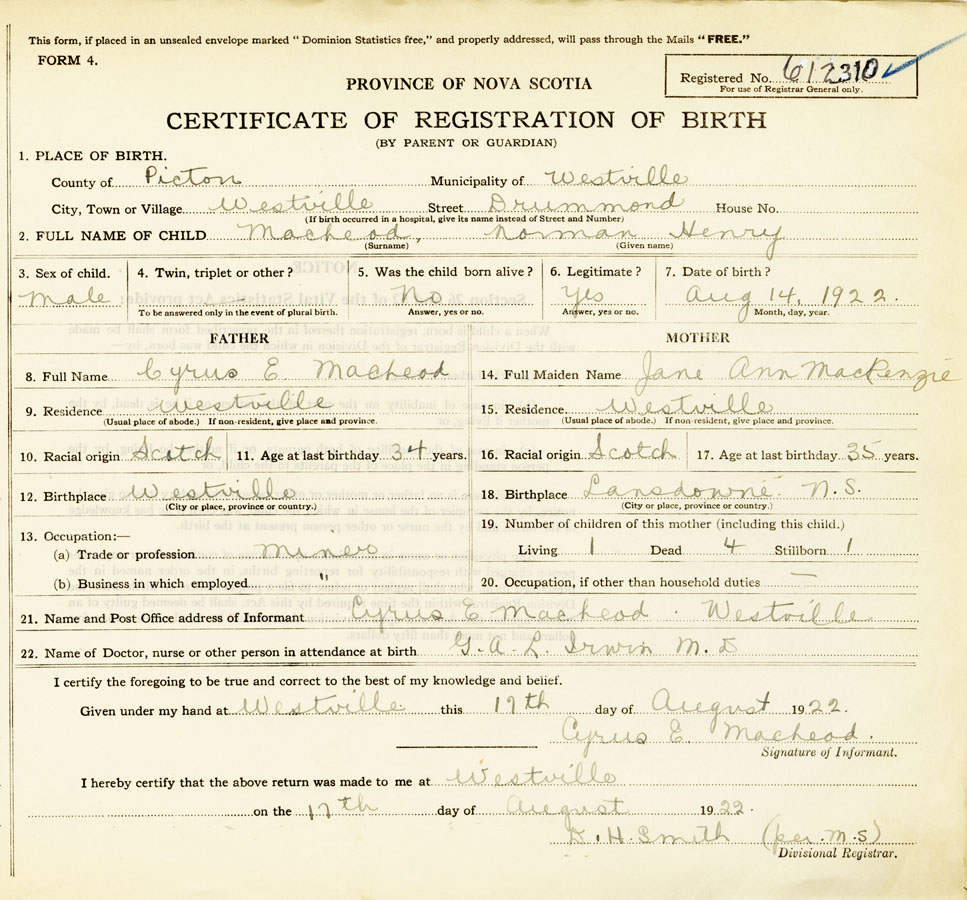 This form, if placed in an unsealed envelope marked "Dominion Statistics free," and properly addressed, will pass through the Mails "FREE."
FORM 4.
Registered No. 612310
For use of Registrar General only.
PROVINCE OF NOVA SCOTIA
CERTIFICATE OF REGISTRATION OF BIRTH
(BY PARENT OR GUARDIAN)
1. PLACE OF BIRTH.
County of Picton Municipality of Westville
City, Town or Village Westville Street Drummond House No.
(If birth occurred in a hospital, give its name instead of Street and Number)
2. FULL NAME OF CHILD MacLeod, Norman Henry
(Surname) (Given name)
3. Sex of child. 4. Twin, triplet or other? 5. Was the child born alive? 6. Legitimate? 7. Date of birth?
Male — No Yes Aug 14, 1922.
To be answered only in the event of plural birth. Answer, yes or no. Answer, yes or no. Month, day, year.
FATHER MOTHER
8. Full Name Cyrus E MacLeod 14. Full Maiden Name Jane Ann MacKenzie
9. Residence Westville 15. Residence Westville
(Usual place of abode.) If non-resident, give place and province. (Usual place of abode.) If non-resident, give place and province.
10. Racial origin Scotch 11. Age at last birthday 34 years. 16. Racial origin Scotch 17. Age at last birthday 35 years.
12. Birthplace Westville 18. Birthplace Lansdowne N.S.
(City or place, province or country.) (City or place, province or country.)
19. Number of children of this mother (including this child.)
13. Occupation:—
(a) Trade or profession Miner Living 1 Dead 4 Stillborn 1
(b) Business in which employed " 20. Occupation, if other than household duties —
21. Name and Post Office address of Informant Cyrus E MacLeod . Westville
22. Name of Doctor, nurse or other person in attendance at birth G. A. L. Irwin M. D
I certify the foregoing to be true and correct to the best of my knowledge and belief.
Given under my hand at Westville this 17th day of August 1922.
Cyrus E. MacLeod.
Signature of Informant.
I hereby certify that the above return was made to me at Westville
on the 17th day of August 1922.
D. H. Smith (per. M. S)
Divisional Registrar.